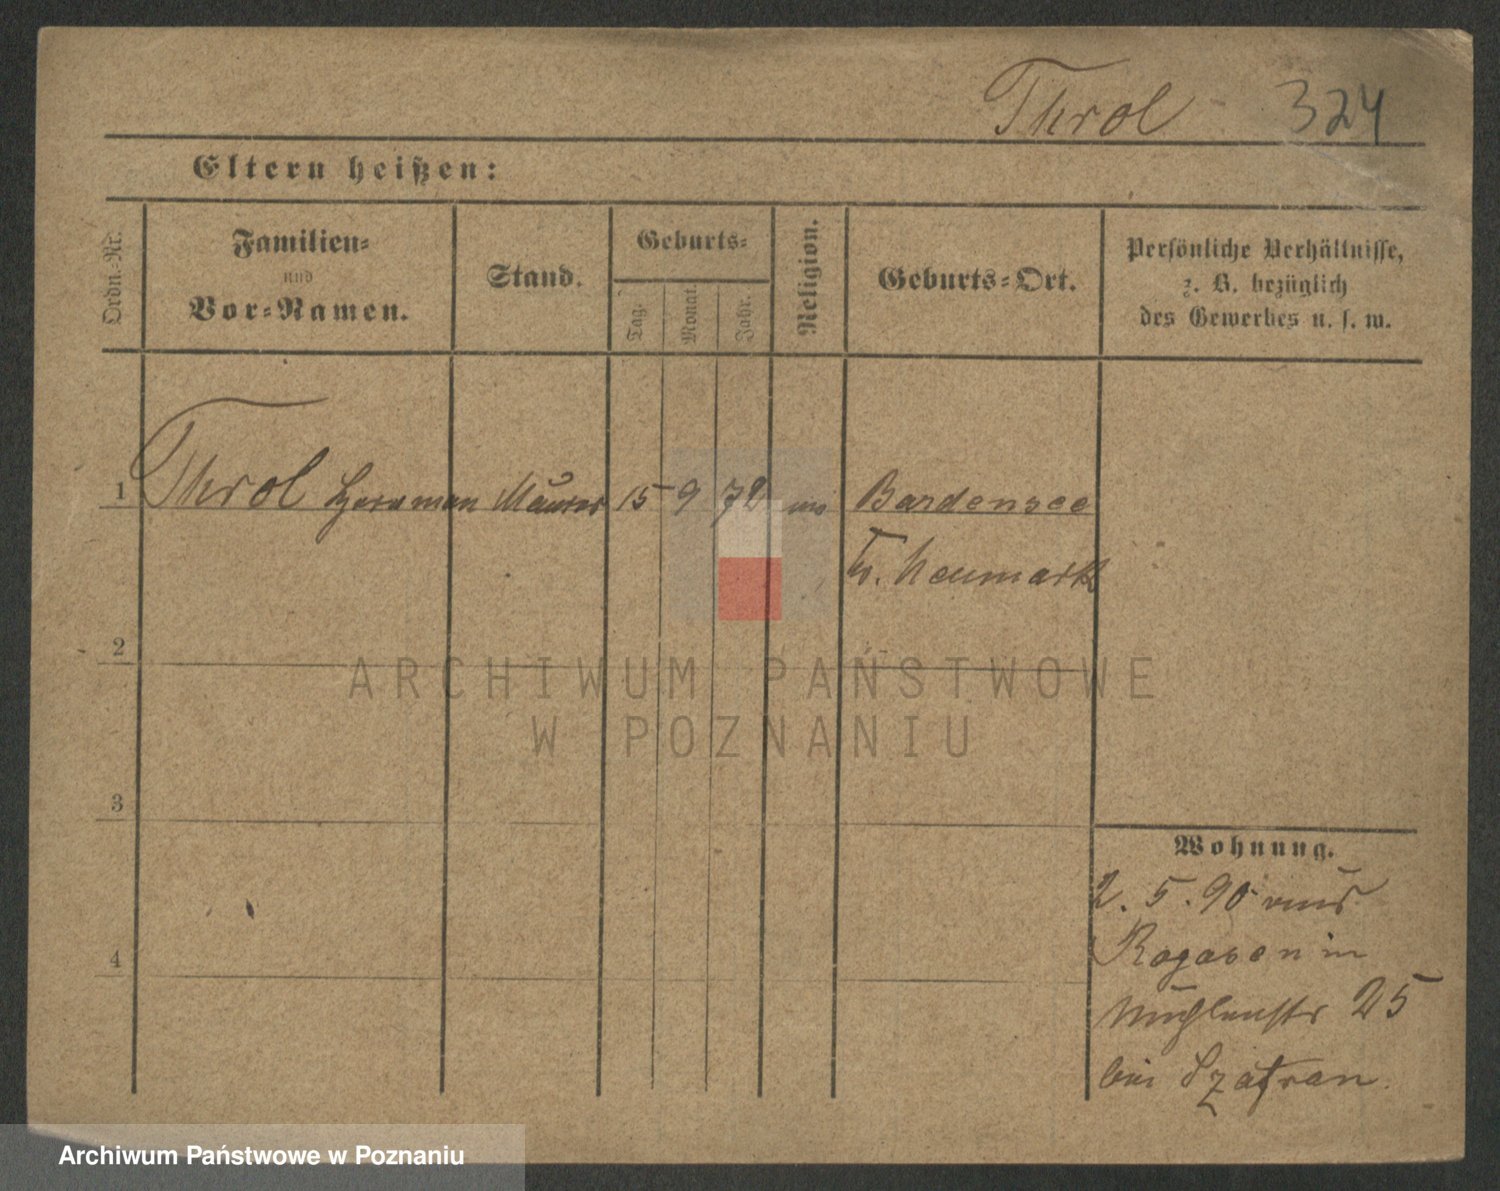 Throl 324
Eltern heißen:
Ordn.-Nr.
Familien-
und
Vor-Namen.
Stand.
Geburts-
Tag.
Monat.
Jahr.
Religion.
Geburts-Ort.
Persönliche Verhältnisse,
z. B. bezüglich
des Gewerbes u. s. w.
1 Throl Herrman Maurer 15 9 72 Bardensee
Neumark
2
ARCHIWUM PAŃSTWOWE
W POZNANIU
3
Wohnung.
2. 5. 90 aus
Rogasen in
4
Mühlenstr 25
bei Szafran.
Archiwum Państwowe w Poznaniu